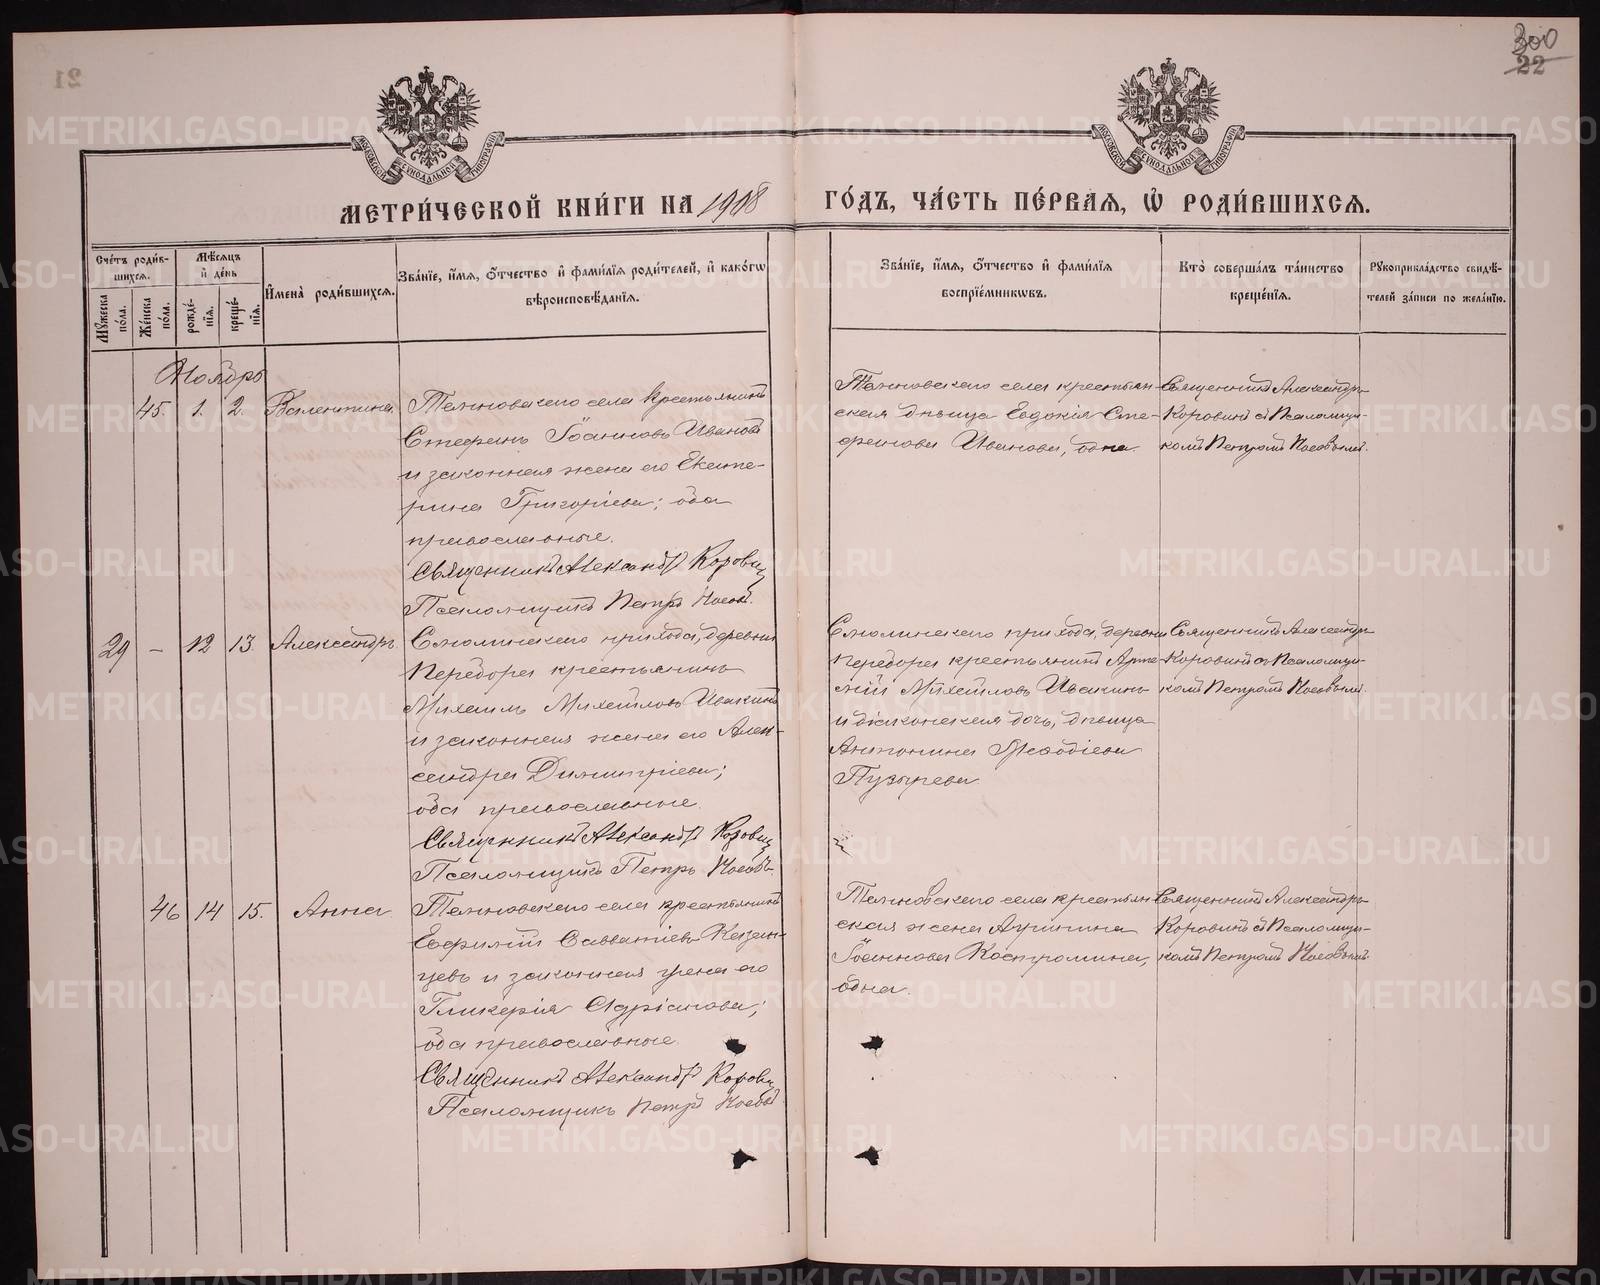 300
22
21
МЕТРИ́ЧЕСКОЙ КНИ́ГИ НА 1908 ГО́ДЪ, ЧА́СТЬ ПЕ́РВАЯ, Ѡ҆ РОДИ́ВШИХСЯ.
Сче́тъ роди́в-
шихся.
Мꙋ́жеска по́ла.
Же́нска по́ла.
Мѣ́сяцъ и҆ де́нь
рожде́-
нїя.
креще́-
нїя.
И҆мена̀ роди́вшихся.
Зва́нїе, и҆́мя, ѻ҆́тчество и҆ фами́лїя роди́телей, и҆ како́гѡ
вѣроисповѣ́данїя.
Зва́нїе, и҆́мя, ѻ҆́тчество и҆ фами́лїя
воспрїе́мникѡвъ.
Кто̀ соверша́лъ та́инство
креще́нїя.
Рꙋкоприкла́дство свидѣ́-
телей за́писи по жела́нїю.
Ноябрь
45. 1. 2. Валентина.
Темновскаго села крестьянинъ
Стефанъ Іоанновъ Ивановъ
и законная жена его Екате-
рина Григоріева; оба
православные.
Священникъ Александр Коровин
Псаломщикъ Петръ Носовъ.
Темновскаго села крестьян-
ская дѣвица Евдокія Сте-
фанова Иванова, одна
Священникъ Александръ
Коровинъ съ Псаломщи-
комъ Петромъ Носовымъ.
29 – 12 13. Александръ.
прихода, деревни
Перебора крестьянинъ
Михаилъ Михайловъ Ивакинъ
и законная жена его Алек-
сандра Димитріева;
оба православные.
Священникъ Александр Коровин
Псаломщикъ Петръ Носовъ.
прихода, деревни
Перебора крестьянинъ Арте-
мій Михайловъ Ивакинъ
и діаконская дочь, дѣвица
Антонина Меѳодіева
Пузырева
Священникъ Александръ
Коровинъ съ Псаломщи-
комъ Петромъ Носовымъ.
46 14 15. Анна.
Темновскаго села крестьянинъ
Евфимій Савватіевъ Казан-
цевъ и законная жена его
Гликерія Адріанова;
оба православные.
Священникъ Александр Коровин
Псаломщикъ Петръ Носовъ
Темновскаго села крестьян-
ская жена Агрипина
Іоаннова Костромина,
одна.
Священникъ Александръ
Коровинъ съ Псаломщи-
комъ Петромъ Носовымъ.
METRIKI.GASO-URAL.RU